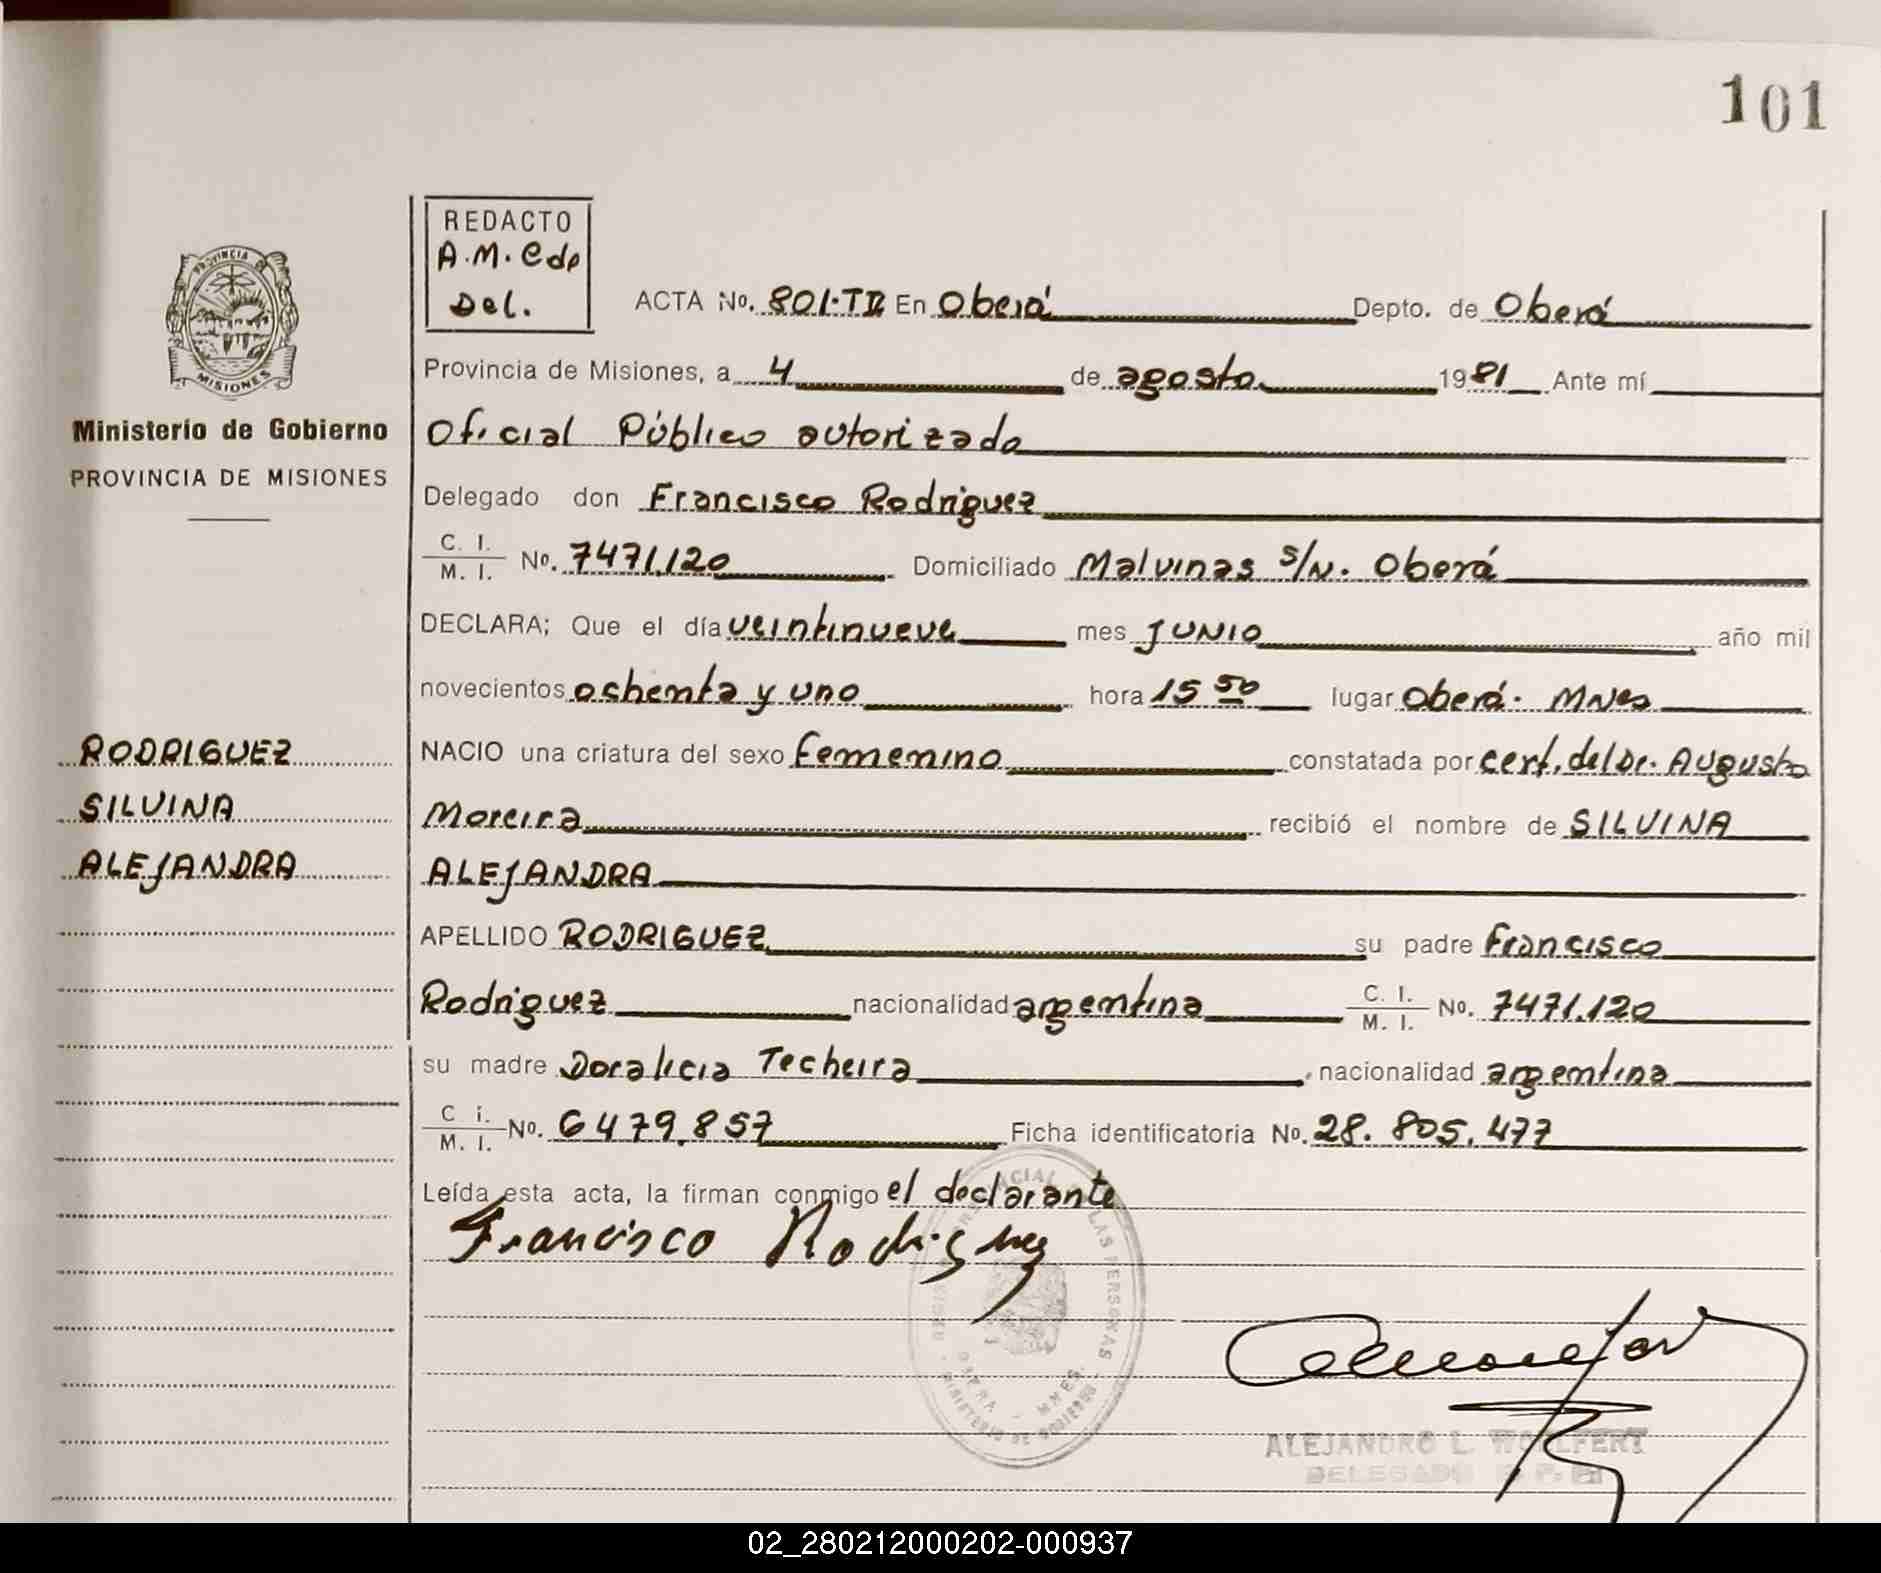 101
REDACTO
A.M. Cdo
Del.
ACTA No. 801·TII En Oberá Depto. de Oberá
Provincia de Misiones, a 4 de agosto 1981 Ante mí
Oficial Público autorizado
Delegado don Francisco Rodriguez
C. I. / M. I. No. 7471.120 Domiciliado Malvinas s/N. Oberá
DECLARA; Que el día veintinueve mes junio año mil
novecientos oshenta y uno hora 15 50 lugar Oberá. MNes
NACIO una criatura del sexo femenino constatada por cert. del Dr. Augusto
Moreira recibió el nombre de SILVINA
ALEJANDRA
APELLIDO RODRIGUEZ su padre Francisco
Rodriguez nacionalidad argentina C. I. / M. I. No. 7471.120
su madre Doralicia Techeira, nacionalidad argentina
C i. / M. I. No. 6479.857 Ficha identificatoria No. 28.805.477
Leída esta acta, la firman conmigo el declarante
Francisco Rodriguez
PROVINCIA DE MISIONES
Ministerio de Gobierno
PROVINCIA DE MISIONES
RODRIGUEZ
SILVINA
ALEJANDRA
LAS PERSONAS
OBERA - MNES.
MINISTERIO DE GOBIERNO
ALEJANDRO L. WOLFERT
DELEGADO
02_280212000202-000937